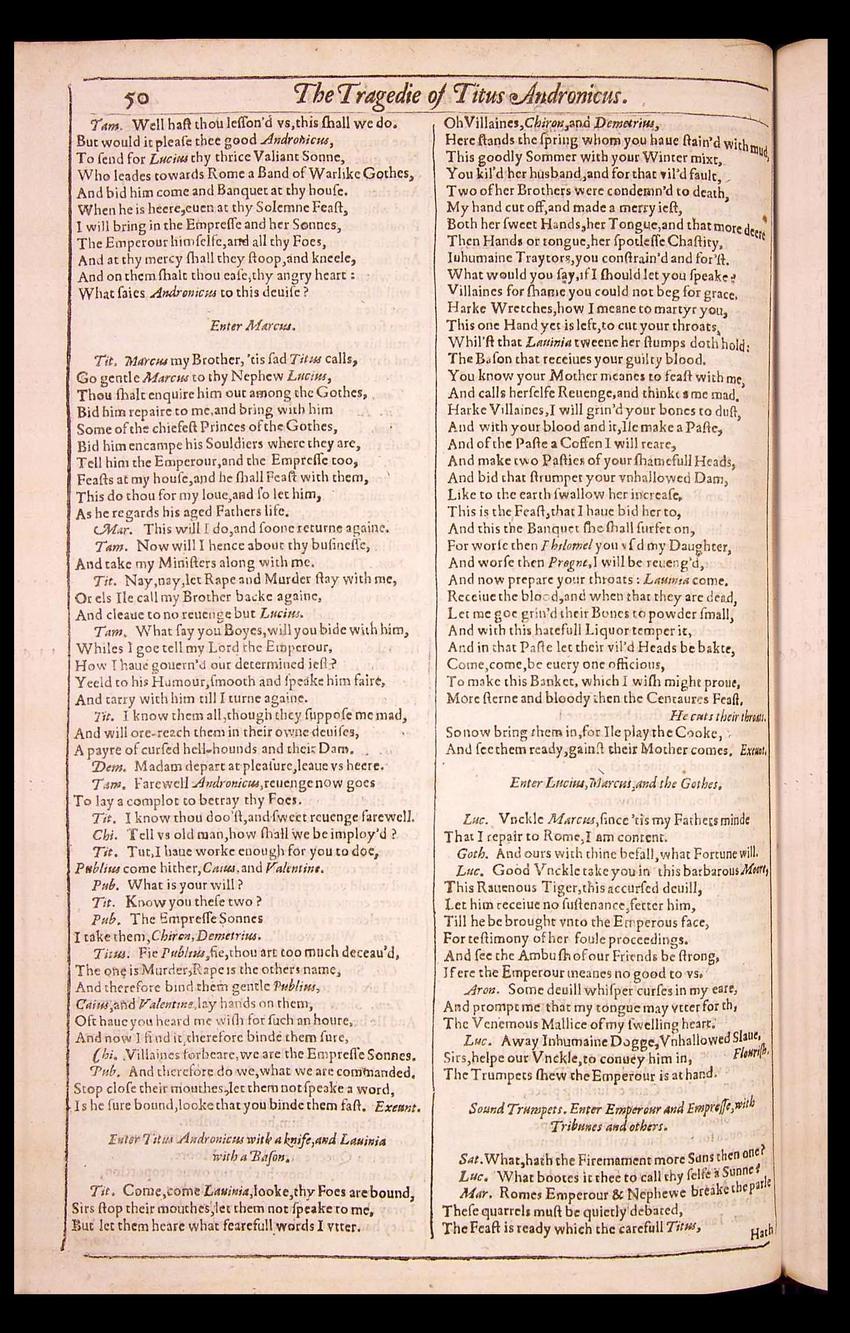 50
The Tragedie of Titus Andronicus.
Tam. Well haſt thou leſſon'd vs, this ſhall we do.
But would it pleaſe thee good Andronicus,
To ſend for Lucius thy thrice Valiant Sonne,
Who leades towards Rome a Band of Warlike Gothes,
And bid him come and Banquet at thy houſe.
When he is heere, euen at thy Solemne Feaſt,
I will bring in the Empreſſe and her Sonnes,
The Emperour himſelfe, and all thy Foes,
And at thy mercy ſhall they ſtoop, and kneele,
And on them ſhalt thou eaſe, thy angry heart :
What ſaies Andronicus to this deuiſe ?
Enter Marcus.
Tit. Marcus my Brother, 'tis ſad Titus calls,
Go gentle Marcus to thy Nephew Lucius,
Thou ſhalt enquire him out among the Gothes,
Bid him repaire to me, and bring with him
Some of the chiefeſt Princes of the Gothes,
Bid him encampe his Souldiers where they are,
Tell him the Emperour, and the Empreſſe too,
Feaſts at my houſe, and he ſhall Feaſt with them,
This do thou for my loue, and ſo let him,
As he regards his aged Fathers life.
Mar. This will I do, and ſoone returne againe.
Tam. Now will I hence about thy buſineſſe,
And take my Miniſters along with me.
Tit. Nay, nay, let Rape and Murder ſtay with me,
Or els Ile call my Brother backe againe,
And cleaue to no reuenge but Lucius.
Tam. What ſay you Boyes, will you bide with him,
Whiles I goe tell my Lord the Emperour,
How I haue gouern'd our determined ieſt ?
Yeeld to his Humour, ſmooth and ſpeake him faire,
And tarry with him till I turne againe.
Tit. I know them all, though they ſuppoſe me mad,
And will ore-reach them in their owne deuiſes,
A payre of curſed hell-hounds and their Dam.
Dem. Madam depart at pleaſure, leaue vs heere.
Tam. Farewell Andronicus, reuenge now goes
To lay a complot to betray thy Foes.
Tit. I know thou doo'ſt, and ſweet reuenge farewell.
Chi. Tell vs old man, how ſhall we be imploy'd ?
Tit. Tut, I haue worke enough for you to doe,
Publius come hither, Caius, and Valentine.
Pub. What is your will ?
Tit. Know you theſe two ?
Pub. The Empreſſe Sonnes
I take them, Chiron, Demetrius.
Titus. Fie Publius, fie, thou art too much deceau'd,
The one is Murder, Rape is the others name,
And therefore bind them gentle Publius,
Caius, and Valentine, lay hands on them,
Oft haue you heard me wiſh for ſuch an houre,
And now I find it, therefore binde them ſure,
Chi. Villaines forbeare, we are the Empreſſe Sonnes.
Pub. And therefore do we, what we are commanded.
Stop cloſe their mouthes, let them not ſpeake a word,
Is he ſure bound, looke that you binde them faſt. Exeunt.
Enter Titus Andronicus with a knife, and Lauinia
with a Baſon.
Tit. Come, come Lauinia, looke, thy Foes are bound,
Sirs ſtop their mouthes, let them not ſpeake to me,
But let them heare what fearefull words I vtter.
Oh Villaines, Chiron, and Demetrius,
Here ſtands the ſpring whom you haue ſtain'd with mud,
This goodly Sommer with your Winter mixt,
You kil'd her husband, and for that vil'd fault,
Two of her Brothers were condemn'd to death,
My hand cut off, and made a merry ieſt,
Both her ſweet Hands, her Tongue, and that more deere
Then Hands or tongue, her ſpotleſſe Chaſtity,
Inhumaine Traytors, you conſtrain'd and for'ſt.
What would you ſay, if I ſhould let you ſpeake ?
Villaines for ſhame you could not beg for grace.
Harke Wretches, how I meane to martyr you,
This one Hand yet is left, to cut your throats,
Whil'ſt that Lauinia tweene her ſtumps doth hold:
The Baſon that receiues your guilty blood.
You know your Mother meanes to feaſt with me,
And calls herſelfe Reuenge, and thinkes me mad.
Harke Villaines, I will grin'd your bones to duſt,
And with your blood and it, Ile make a Paſte,
And of the Paſte a Coffen I will reare,
And make two Paſties of your ſhamefull Heads,
And bid that ſtrumpet your vnhallowed Dam,
Like to the earth ſwallow her increaſe.
This is the Feaſt, that I haue bid her to,
And this the Banquet ſhe ſhall ſurfet on,
For worſe then Philomel you vſ'd my Daughter,
And worſe then Progne, I will be reueng'd,
And now prepare your throats : Lauinia come.
Receiue the blood, and when that they are dead,
Let me goe grin'd their Bones to powder ſmall,
And with this hatefull Liquor temper it,
And in that Paſte let their vil'd Heads be bakte,
Come, come, be euery one officious,
To make this Banket, which I wiſh might proue,
More ſterne and bloody then the Centaures Feaſt.
He cuts their throats.
So now bring them in, for Ile play the Cooke,
And ſee them ready, gainſt their Mother comes. Exeunt.
Enter Lucius, Marcus, and the Gothes.
Luc. Vnckle Marcus, ſince 'tis my Fathers minde
That I repair to Rome, I am content.
Goth. And ours with thine befall, what Fortune will.
Luc. Good Vnckle take you in this barbarous Moore,
This Rauenous Tiger, this accurſed deuill,
Let him receiue no ſuſtenance, fetter him,
Till he be brought vnto the Emperous face,
For teſtimony of her foule proceedings.
And ſee the Ambuſh of our Friends be ſtrong,
If ere the Emperour meanes no good to vs.
Aron. Some deuill whiſper curſes in my eare,
And prompt me that my tongue may vtter forth,
The Venemous Mallice of my ſwelling heart.
Luc. Away Inhumaine Dogge, Vnhallowed Slaue,
Sirs, helpe our Vnckle, to conuey him in, Flouriſh.
The Trumpets ſhew the Emperour is at hand.
Sound Trumpets. Enter Emperour and Empreſſe, with
Tribunes and others.
Sat. What, hath the Firemament more Suns then one?
Luc. What bootes it thee to call thy ſelfe a Sunne?
Mar. Romes Emperour & Nephewe breake the parle
Theſe quarrels muſt be quietly debated,
The Feaſt is ready which the carefull Titus,
Hath